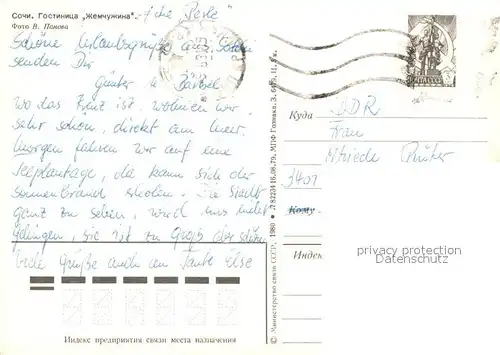 Сочи. Гостиница „Жемчужина". - / die "Perle"
Фото В. Панова
Schöne Urlaubsgrüße aus Sotschi
senden Dir
Günter u. Bärbel
wo das Kreuz ist, wohnen wir,
sehr schön, direkt am Meer.
Morgen fahren wir auf eine
Teeplantage, da kann sich der
Sonnenbrand erholen. Die Stadt
ganz zu sehen, wird uns nicht
gelingen, sie ist zu groß aber schön.
Viele Grüße auch an Tante Else
Индекс предприятия связи места назначения
© Министерство связи СССР, 1980 • 782234 16.08.79. МПФ Гознака. З. 6479. Ц. 4 к.
Куда DDR
Frau
Rüter
3401
Кому
Индекс
privacy protection
Datenschutz